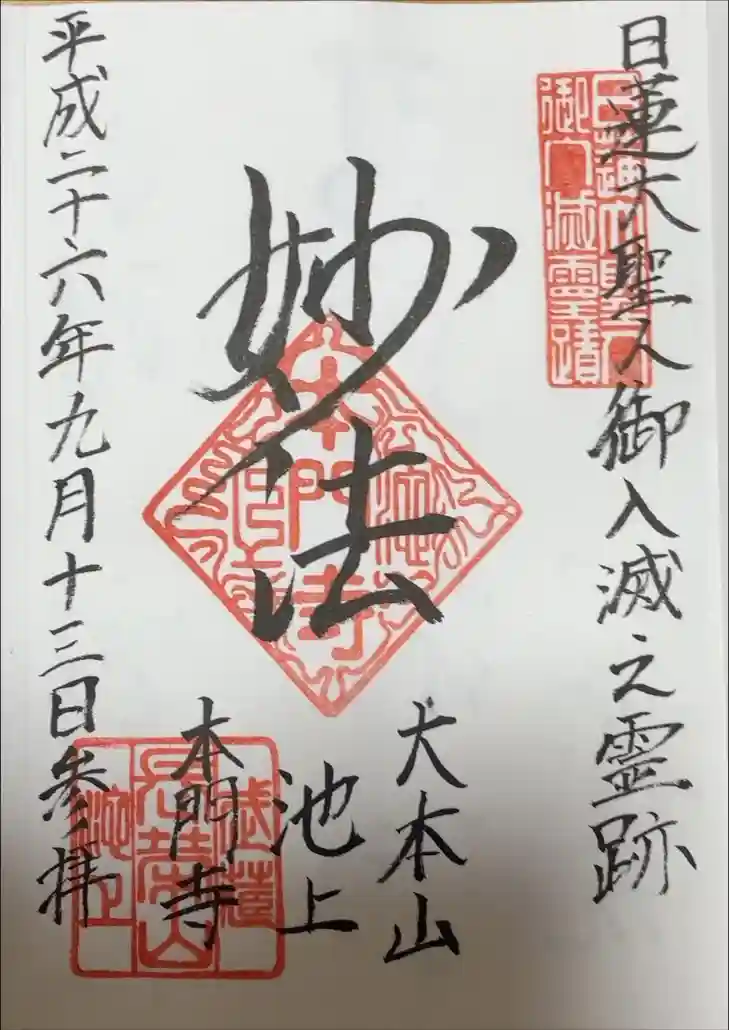 日蓮大聖人御入滅之霊跡
日蓮大聖人
御入滅霊蹟
妙法
本門寺
大本山
池上
本門寺
長栄山
池上
平成二十六年九月十三日参拝